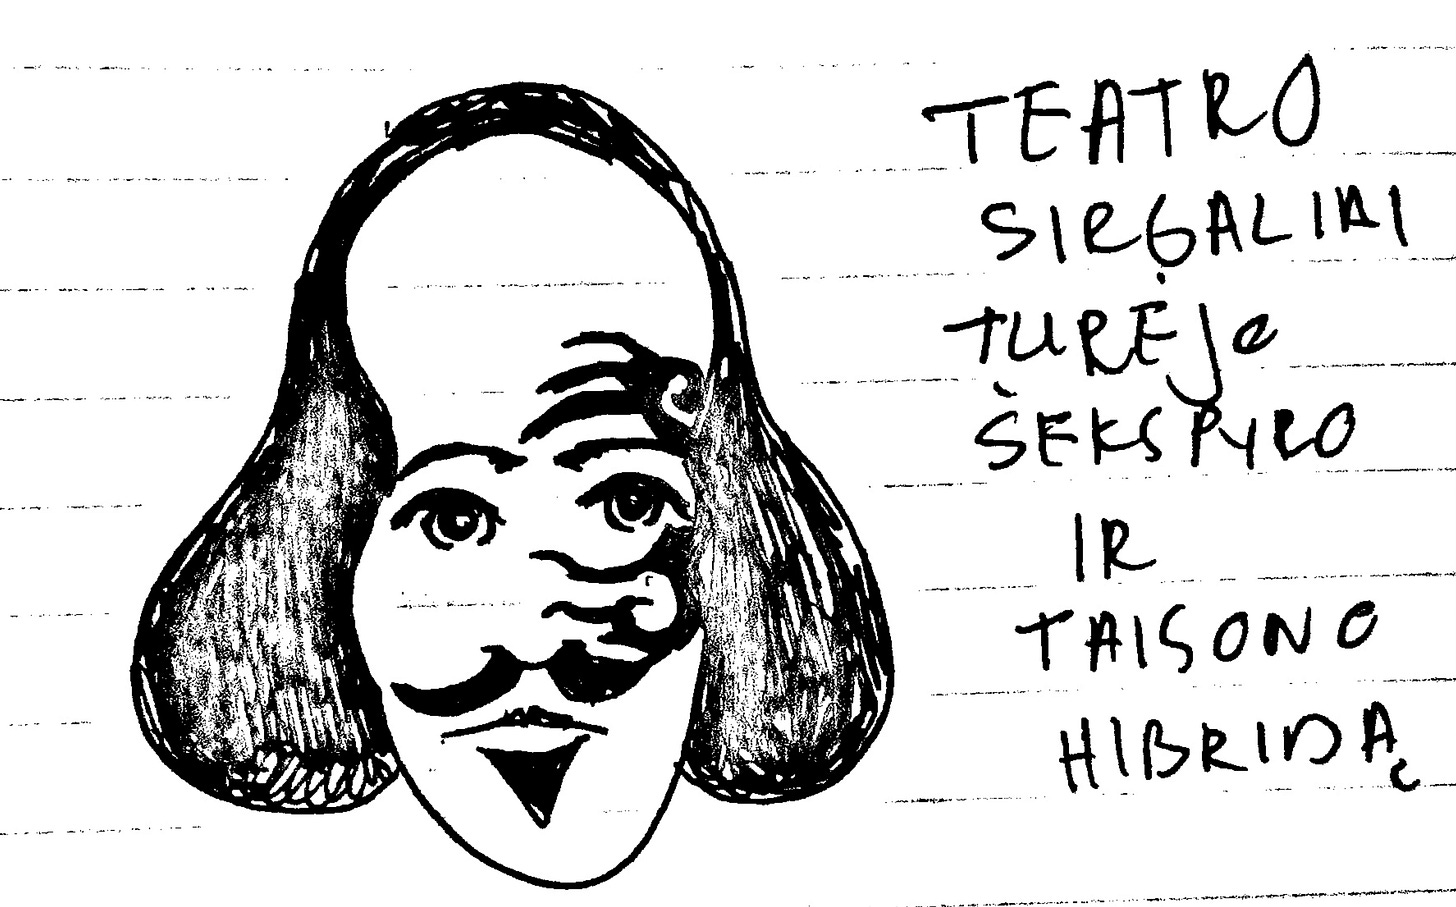 TEATRO
SIRGALIAI
TURĖJO
ŠEKSPYRO
IR
TAISONO
HIBRIDĄ